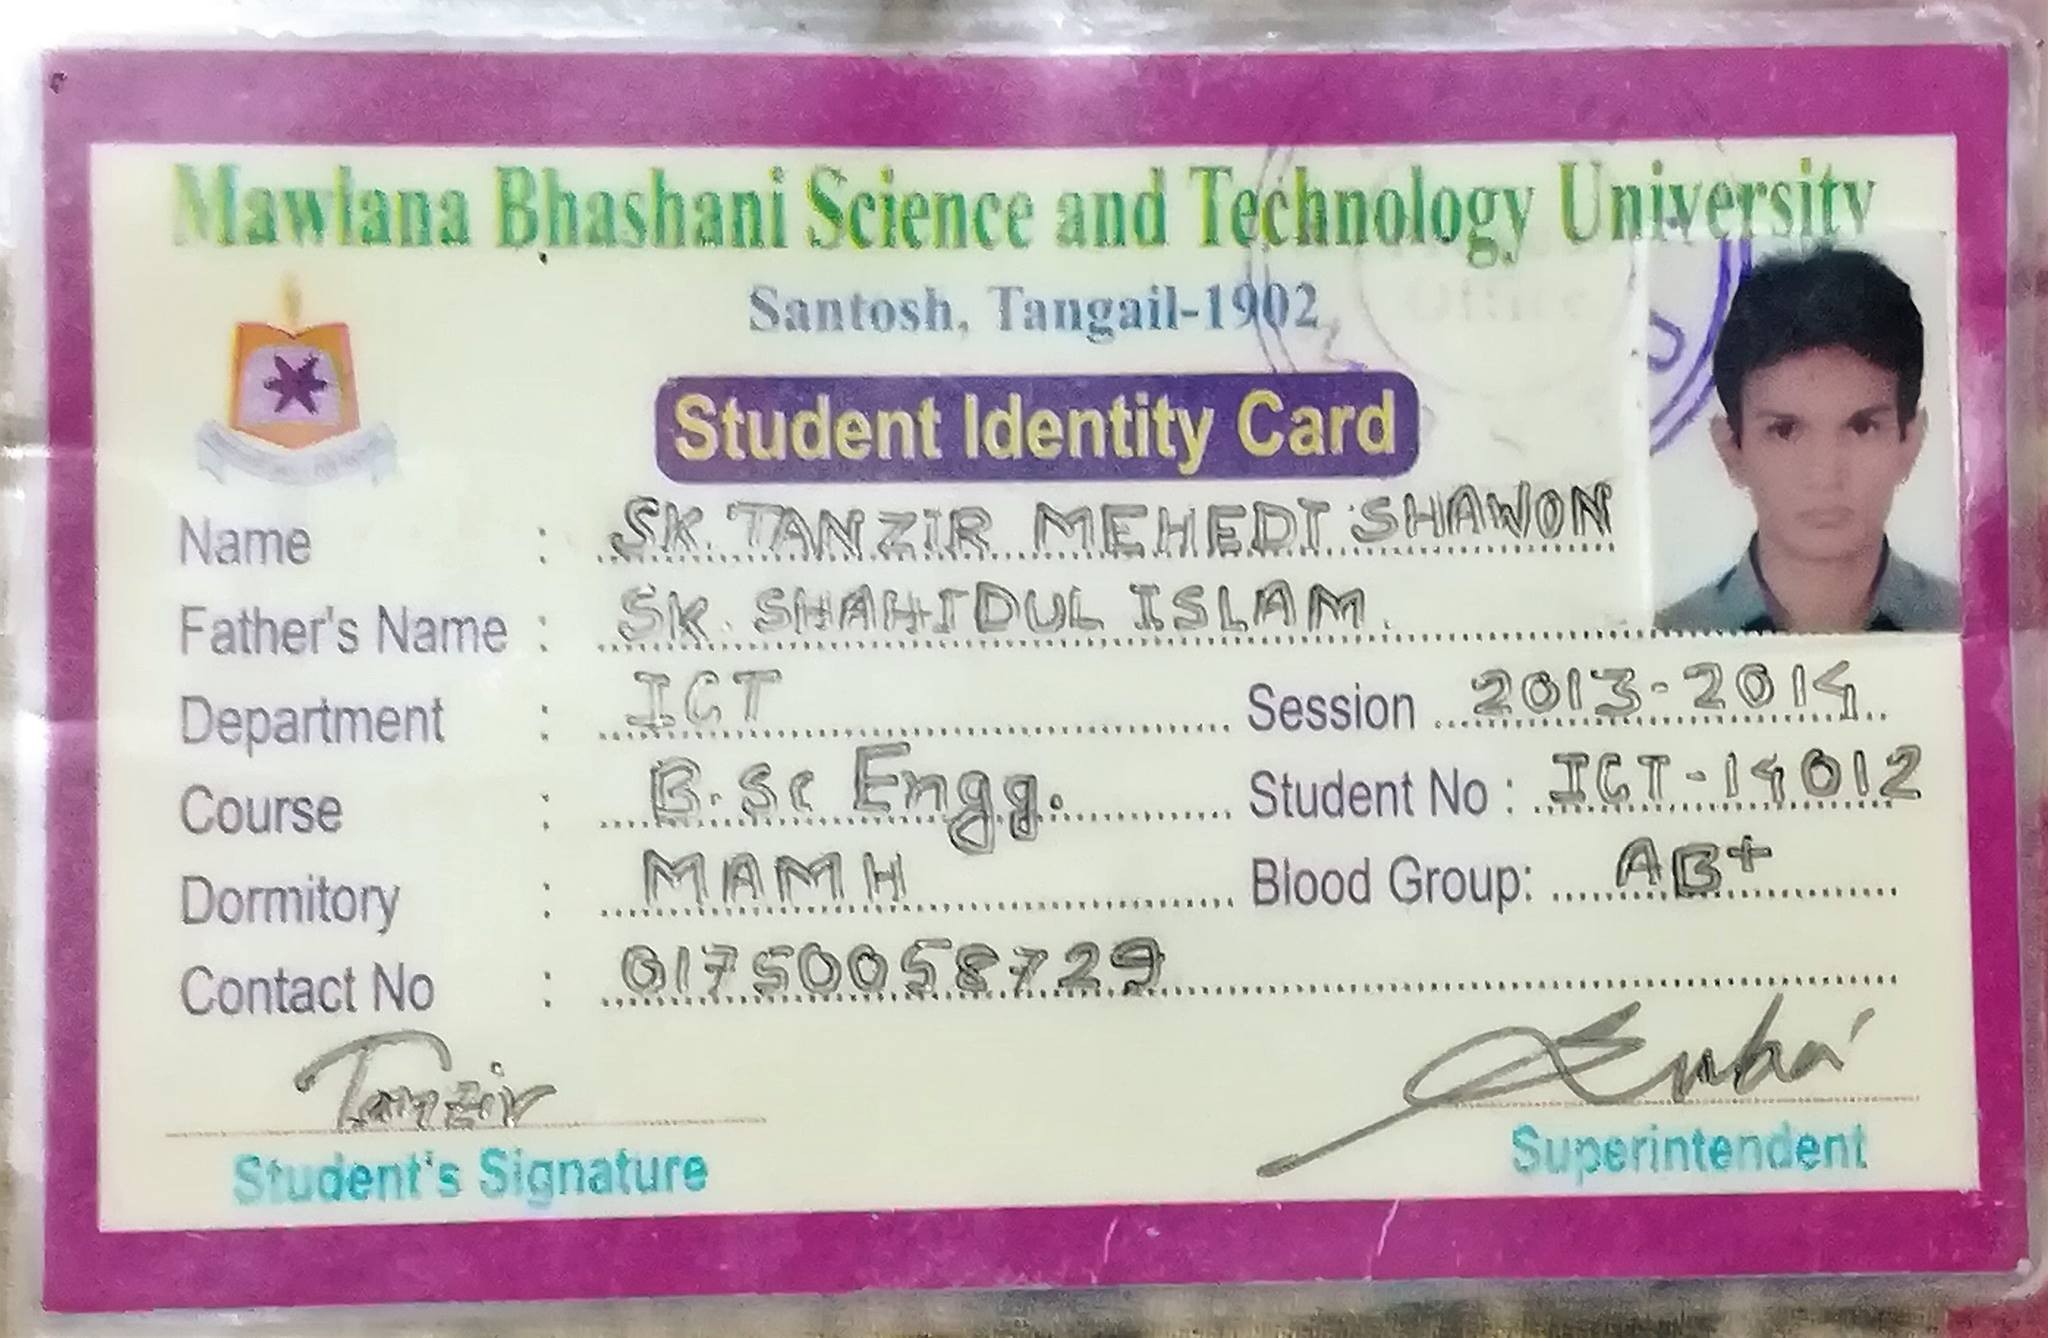 Mawlana Bhashani Science and Technology University
Santosh, Tangail-1902
Office
Student Identity Card
Name : SK. TANZIR MEHEDI SHAWON
Father's Name : SK. SHAHIDUL ISLAM.
Department : ICT Session 2013-2014
Course : B.Sc Engg. Student No : ICT-14012
Dormitory : MAMH Blood Group: AB+
Contact No : 01750058729
Tanzir
Student's Signature
Superintendent